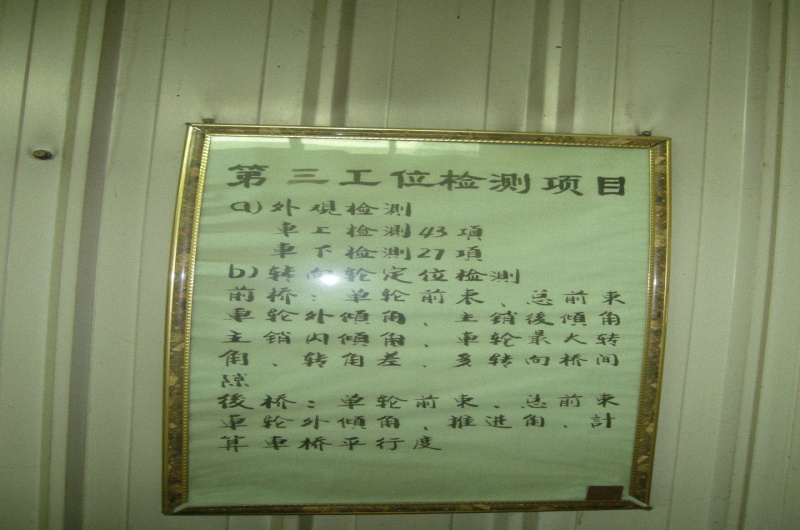 第三工位检测项目
a)外观检测
車工检测43項
車下检测27項
b)转向轮定位检测
前桥:单轮前束、总前束
車轮外傾角、主销後傾角
主销内傾角、車轮最大转
角、转角差、多转向桥间
隙
後桥:单轮前束、总前束
車轮外傾角、推进角、計
算車桥平行度